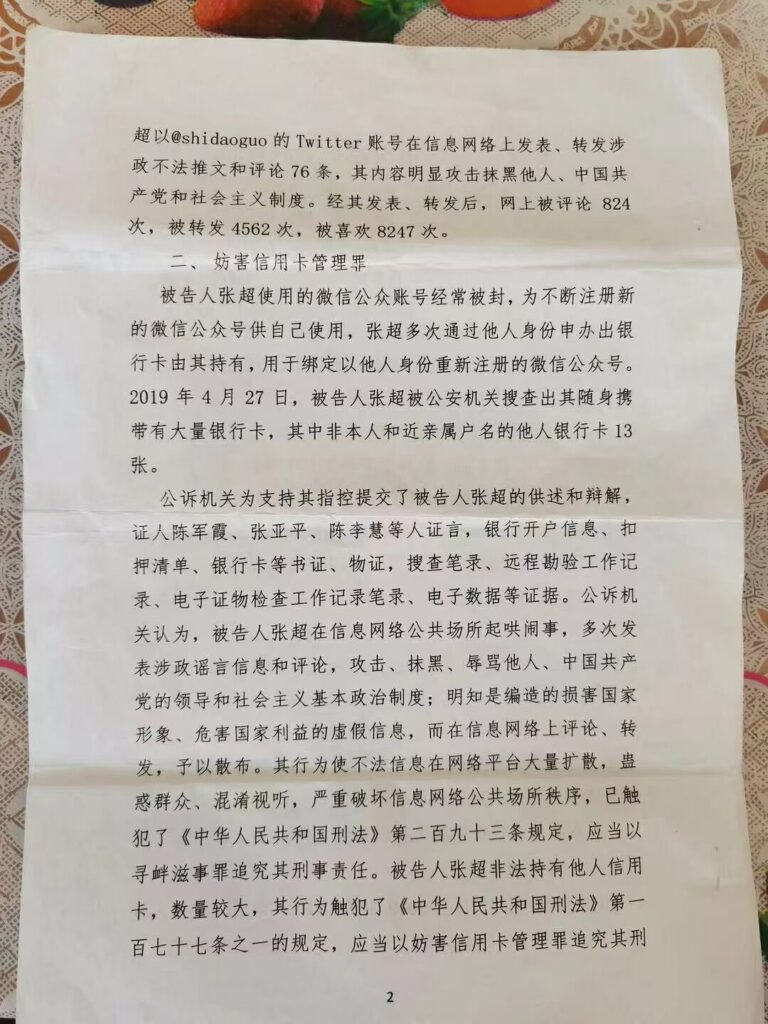 超以@shidaoguo 的 Twitter 账号在信息网络上发表、转发涉
政不法推文和评论 76 条，其内容明显攻击抹黑他人、中国共
产党和社会主义制度。经其发表、转发后，网上被评论 824
次，被转发 4562 次，被喜欢 8247 次。
二、妨害信用卡管理罪
被告人张超使用的微信公众账号经常被封，为不断注册新
的微信公众号供自己使用，张超多次通过他人身份申办出银
行卡由其持有，用于绑定以他人身份重新注册的微信公众号。
2019 年 4 月 27 日，被告人张超被公安机关搜查出其随身携
带有大量银行卡，其中非本人和近亲属户名的他人银行卡 13
张。
公诉机关为支持其指控提交了被告人张超的供述和辩解，
证人陈军霞、张亚平、陈李慧等人证言，银行开户信息、扣
押清单、银行卡等书证、物证，搜查笔录、远程勘验工作记
录、电子证物检查工作记录笔录、电子数据等证据。公诉机
关认为，被告人张超在信息网络公共场所起哄闹事，多次发
表涉政谣言信息和评论，攻击、抹黑、辱骂他人、中国共产
党的领导和社会主义基本政治制度；明知是编造的损害国家
形象、危害国家利益的虚假信息，而在信息网络上评论、转
发，予以散布。其行为使不法信息在网络平台大量扩散，蛊
惑群众、混淆视听，严重破坏信息网络公共场所秩序，已触
犯了《中华人民共和国刑法》第二百九十三条规定，应当以
寻衅滋事罪追究其刑事责任。被告人张超非法持有他人信用
卡，数量较大，其行为触犯了《中华人民共和国刑法》第一
百七十七条之一的规定，应当以妨害信用卡管理罪追究其刑
2